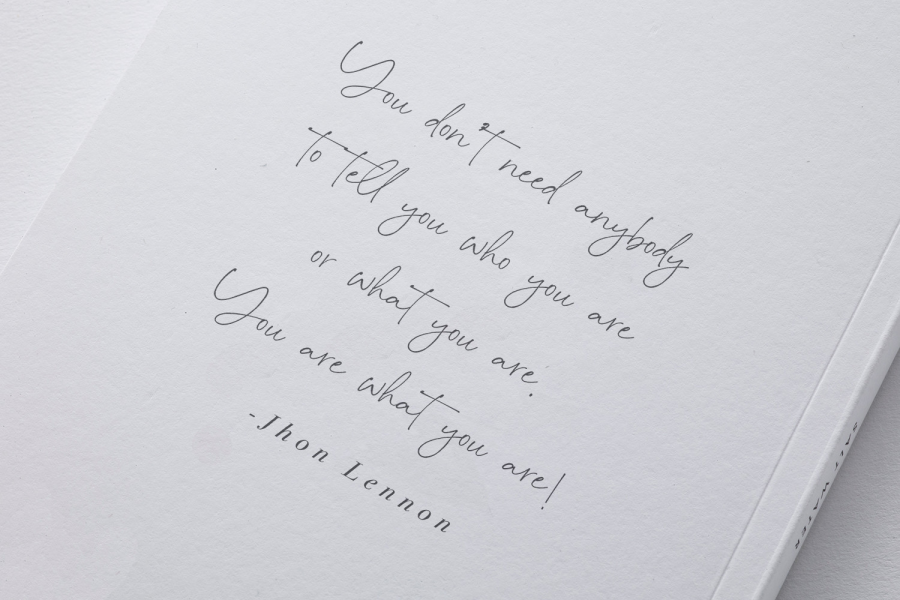 You don't need anybody
to tell you who you are
or what you are.
You are what you are!
-Jhon Lennon
SALT WATER